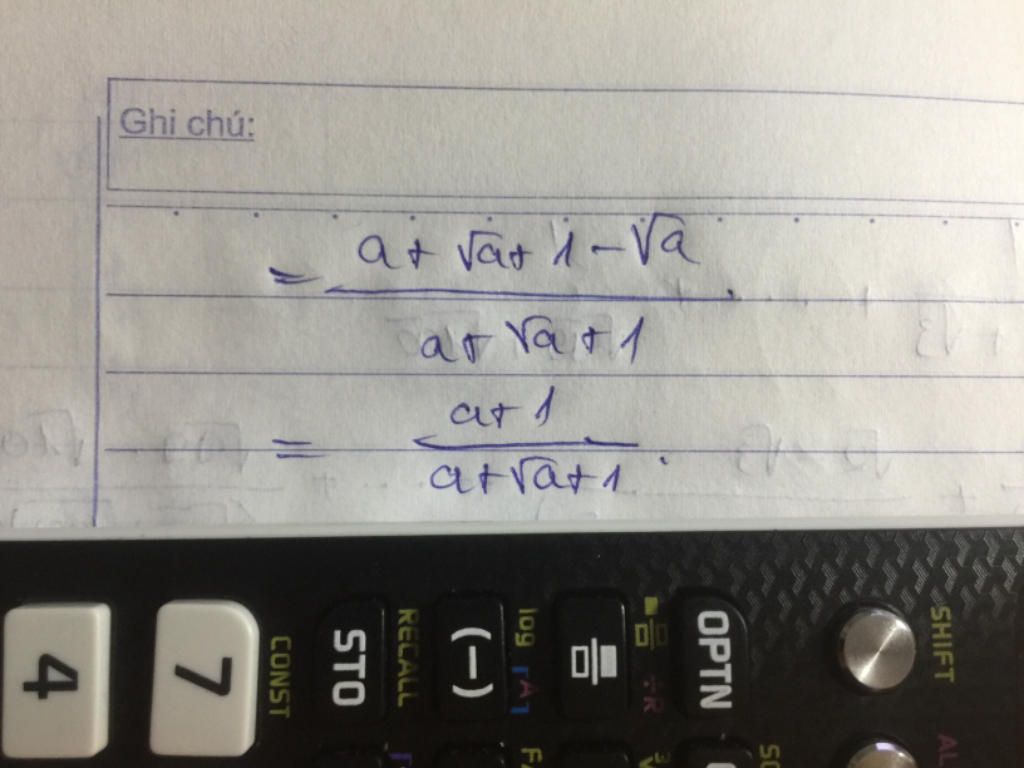 Ghi chú:
= \frac{a + \sqrt{a} + 1 - \sqrt{a}}{a + \sqrt{a} + 1}
= \frac{a + 1}{a + \sqrt{a} + 1}.
SHIFT
OPTN
÷R
(−)
log
STO
RECALL
7
CONST
4